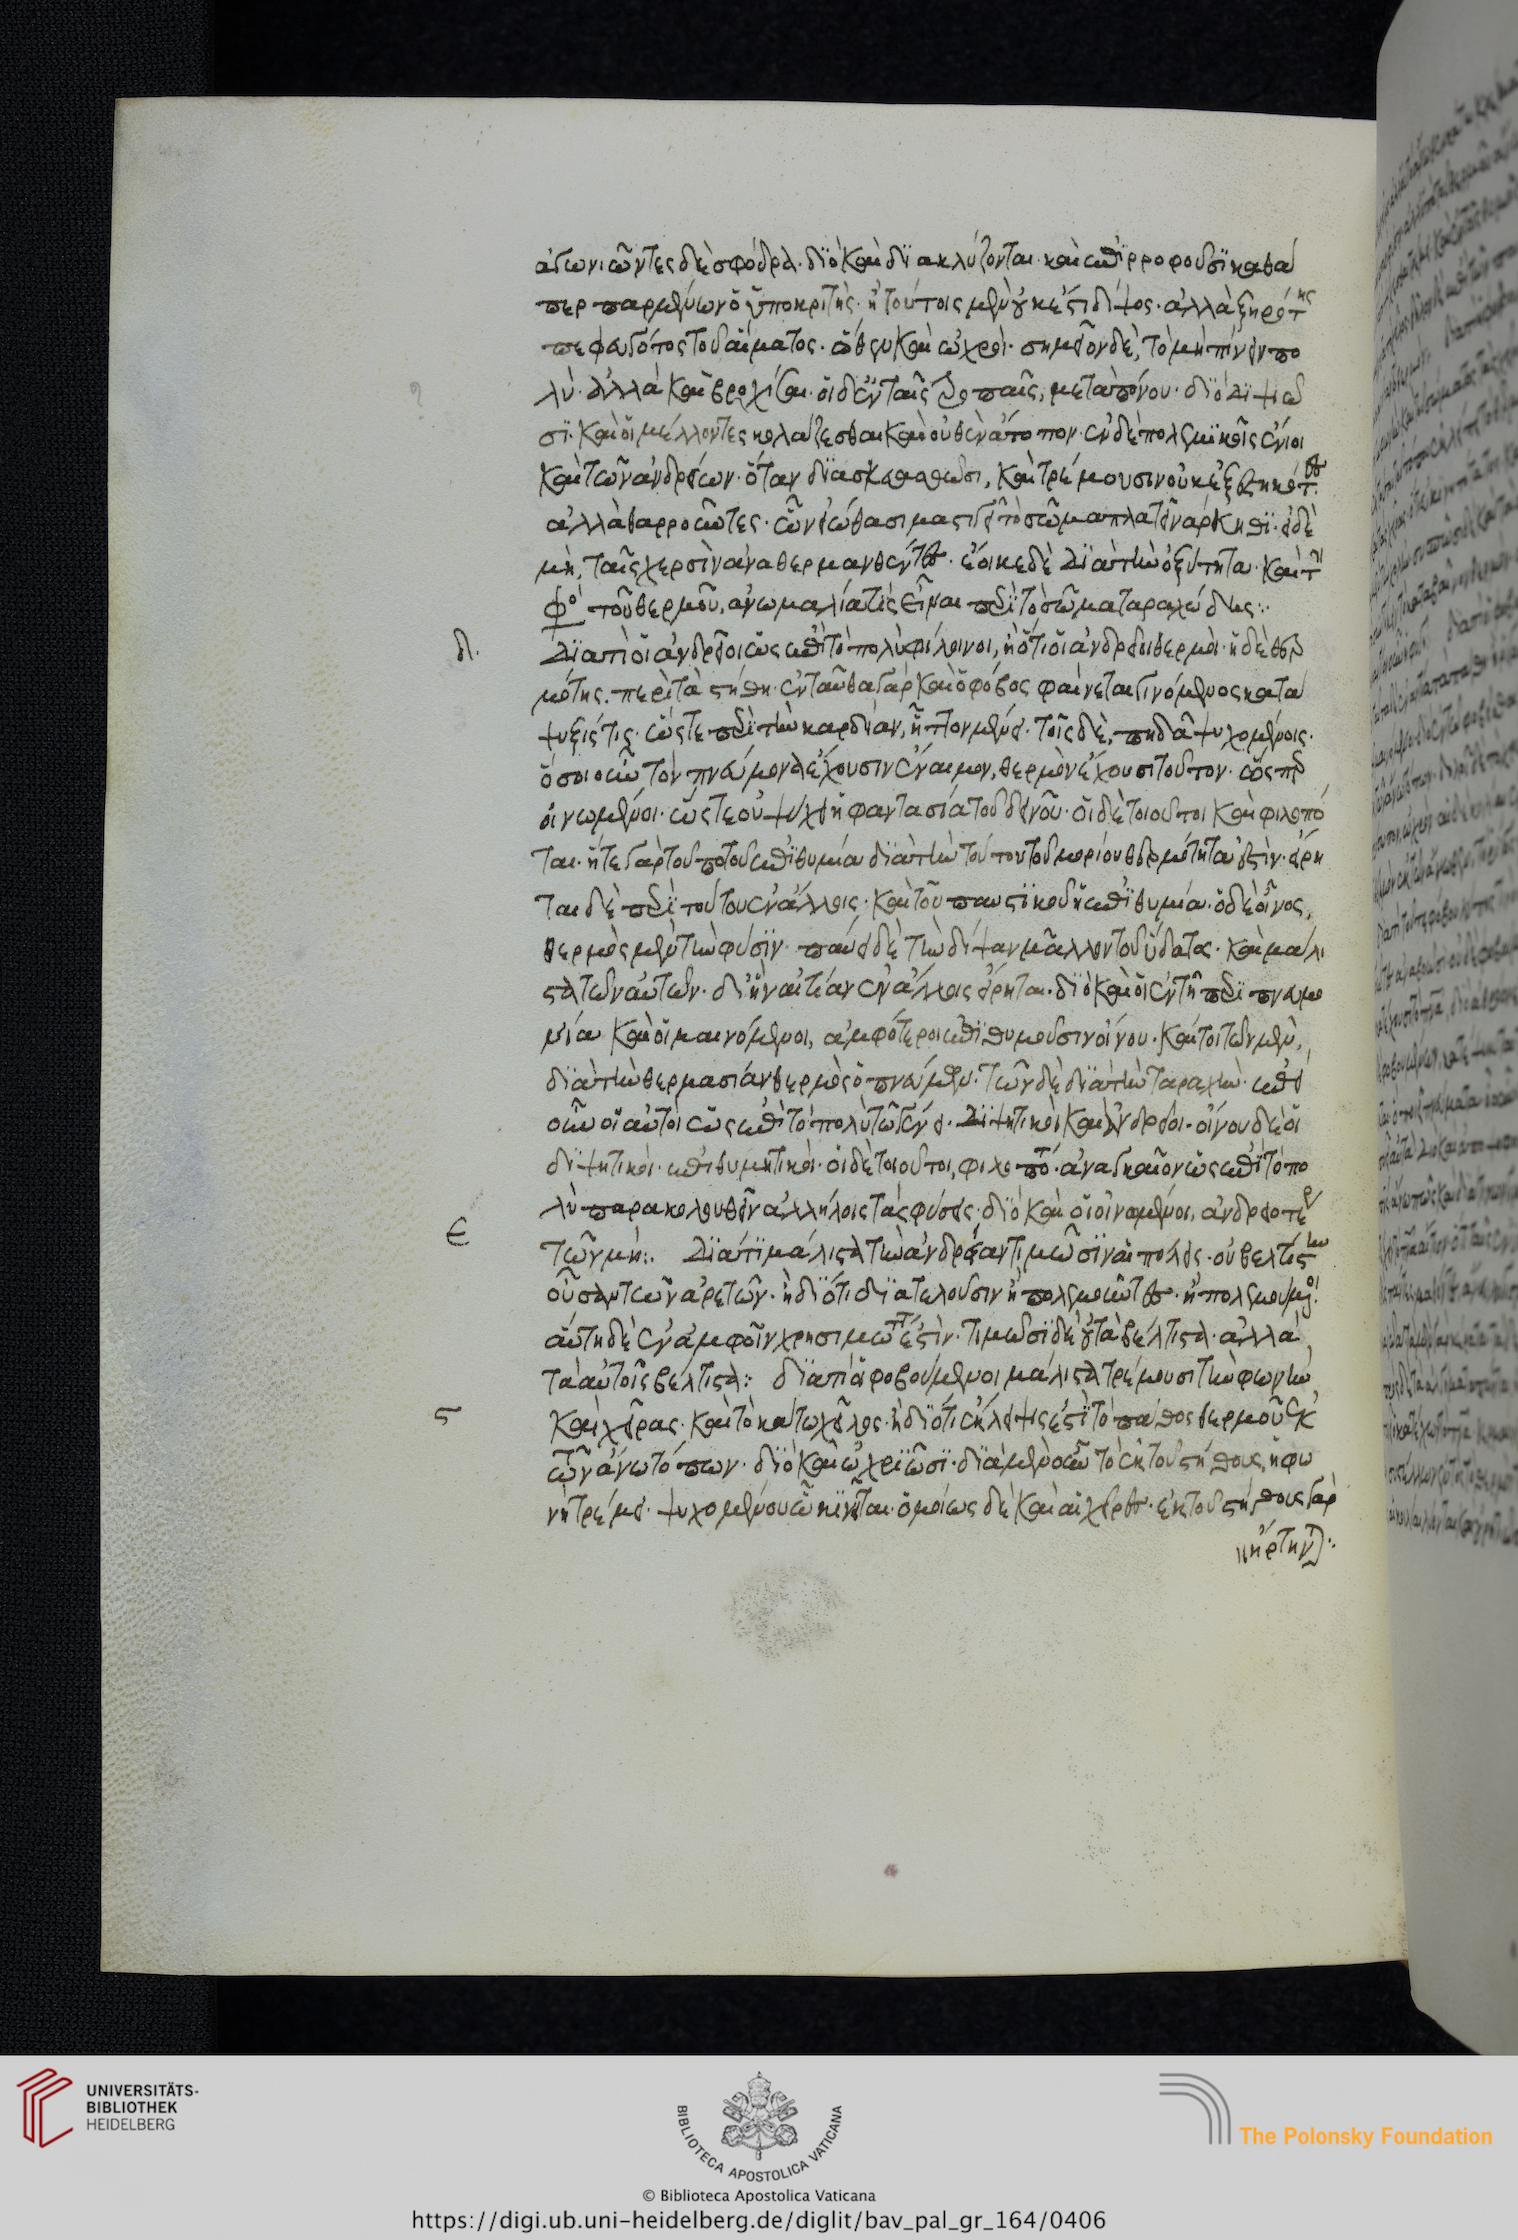 ἀγωνιῶντες δὲ σφόδρα· διὸ καὶ διακλύζονται· καὶ ἐπιρροφοῦσι καθά
περ παρμένων ὁ ὑποκριτής· ἢ τούτοις μὲν οὐκ ἔστι δίψος· ἀλλὰ ξηρότης
πεφευγότος τοῦ αἵματος· ὅθεν καὶ ὠχροί· σημεῖον δὲ, τὸ μὴ πίνειν πο
λὺ· ἀλλὰ καὶ βροχίσαι· οἱ δ' ἐν ταῖς τροπαῖς, μετὰ πόνου· διὸ διψῶ
σι· καὶ οἱ μέλλοντες κολάζεσθαι καὶ οὐθὲν ἄτοπον· ἐν δὲ πολεμικοῖς ἔνιοι
καὶ τῶν ἀνδρείων· ὅταν διασκευασθῶσι, καὶ τρέμουσιν οὐκ ἐξεστηκότες·
ἀλλὰ θαρροῦντες· ὧν εἰώθασι μαστιγοῦν τὸ σῶμα πλατεῖ νάρθηκι· εἰ δὲ
μὴ, ταῖς χερσὶν ἀναθερμανθέντες· ἔοικε δὲ διὰ τὴν ὀξύτητα· καὶ τὴν
φο τοῦ θερμοῦ, ἀνωμαλία τις εἶναι περὶ τὸ σῶμα ταραχώδης:
δ. Διατί οἱ ἀνδρεῖοι ὡς ἐπὶ τὸ πολὺ φίλοινοι, ἢ ὅτι οἱ ἀνδρεῖοι θερμοί· ἡ δὲ θερ
μότης· περὶ τὰ στήθη· ἐνταῦθα γὰρ καὶ ὁ φόβος φαίνεται γινόμενος κατά
ψυξίς τις· ὥστε περὶ τὴν καρδίαν, ἧττον μένει· τοῖς δὲ, πηδᾷ ψυχομένοις·
ὅσοι οὖν τὸν πνεύμονα ἔχουσιν ἔναιμον, θερμὸν ἔχουσι τοῦτον· ὥσπερ
οἰνωμένοι· ὥστε οὐ ψύχει ἡ φαντασία τοῦ δεινοῦ· οἱ δὲ τοιοῦτοι καὶ φιλοπό
ται· ἥ τε γὰρ τοῦ ποτοῦ ἐπιθυμία διὰ τὴν τούτου τοῦ μορίου θερμότητα ἐστὶν· εἴρη
ται δὲ περὶ τούτου ἐν ἄλλοις· καὶ τοῦ παυστικοῦ ἡ ἐπιθυμία· ὁ δὲ οἶνος,
θερμὸς μὲν τὴν φύσιν· παύει δὲ τὴν δίψαν μᾶλλον τοῦ ὕδατος· καὶ μάλι
στα τῶν αὐτῶν· δι' ἣν αἰτίαν ἐν ἄλλοις εἴρηται· διὸ καὶ οἱ ἐν τῇ περιπνευμο
νίᾳ καὶ οἱ μαινόμενοι, ἀμφότεροι ἐπιθυμοῦσιν οἴνου· καίτοι τῶν μὲν,
διὰ τὴν θερμασίαν θερμὸς ὁ πνεύμων· τῶν δὲ διὰ τὴν ταραχήν· ἐπεὶ
οὖν οἱ αὐτοὶ ὡς ἐπὶ τὸ πολὺ τῷ γένει· διψητικοὶ καὶ ἀνδρεῖοι· οἴνου δὲ οἱ
διψητικοὶ· ἐπιθυμητικοί· οἱ δὲ τοιοῦτοι, φιλοπότ· ἀναγκαῖον ὡς ἐπὶ τὸ πο
λὺ παρακολουθεῖν ἀλλήλοις τὰς φύσεις· διὸ καὶ οἱ οἰνωμένοι, ἀνδρειότερ
ε τῶν μή: Διατί μάλιστα τὴν ἀνδρείαν τιμῶσιν αἱ πόλεις· οὐ βελτίστην
οὖσαν τῶν ἀρετῶν· ἢ διότι διατελοῦσιν ἢ πολεμοῦντες· ἢ πολεμούμενοι·
αὕτη δὲ ἐν ἀμφοῖν χρησιμωτ ἐστὶν· τιμῶσι δὲ οὐ τὰ βέλτιστα· ἀλλὰ
τὰ αὐτοῖς βέλτιστα: διατί οἱ φοβούμενοι μάλιστα τρέμουσι τὴν φωνὴν
ϛ καὶ χεῖρας· καὶ τὸ κάτω χεῖλος· ἢ διότι ἔκλειψις ἐστὶ τὸ πάθος θερμοῦ ἐκ
τῶν ἄνω τόπων· διὸ καὶ ὠχριῶσι· διὰ μὲν οὖν τὸ ἐκ τοῦ στήθους, ἡ φω
νὴ τρέμει· ψυχομένου ᾧ κινεῖται· ὁμοίως δὲ καὶ αἱ χεῖρες· ἐκ τοῦ στήθους γὰρ
ἤρτηνται:
UNIVERSITÄTS-
BIBLIOTHEK
HEIDELBERG
BIBLIOTECA APOSTOLICA VATICANA
The Polonsky Foundation
© Biblioteca Apostolica Vaticana
https://digi.ub.uni-heidelberg.de/diglit/bav_pal_gr_164/0406